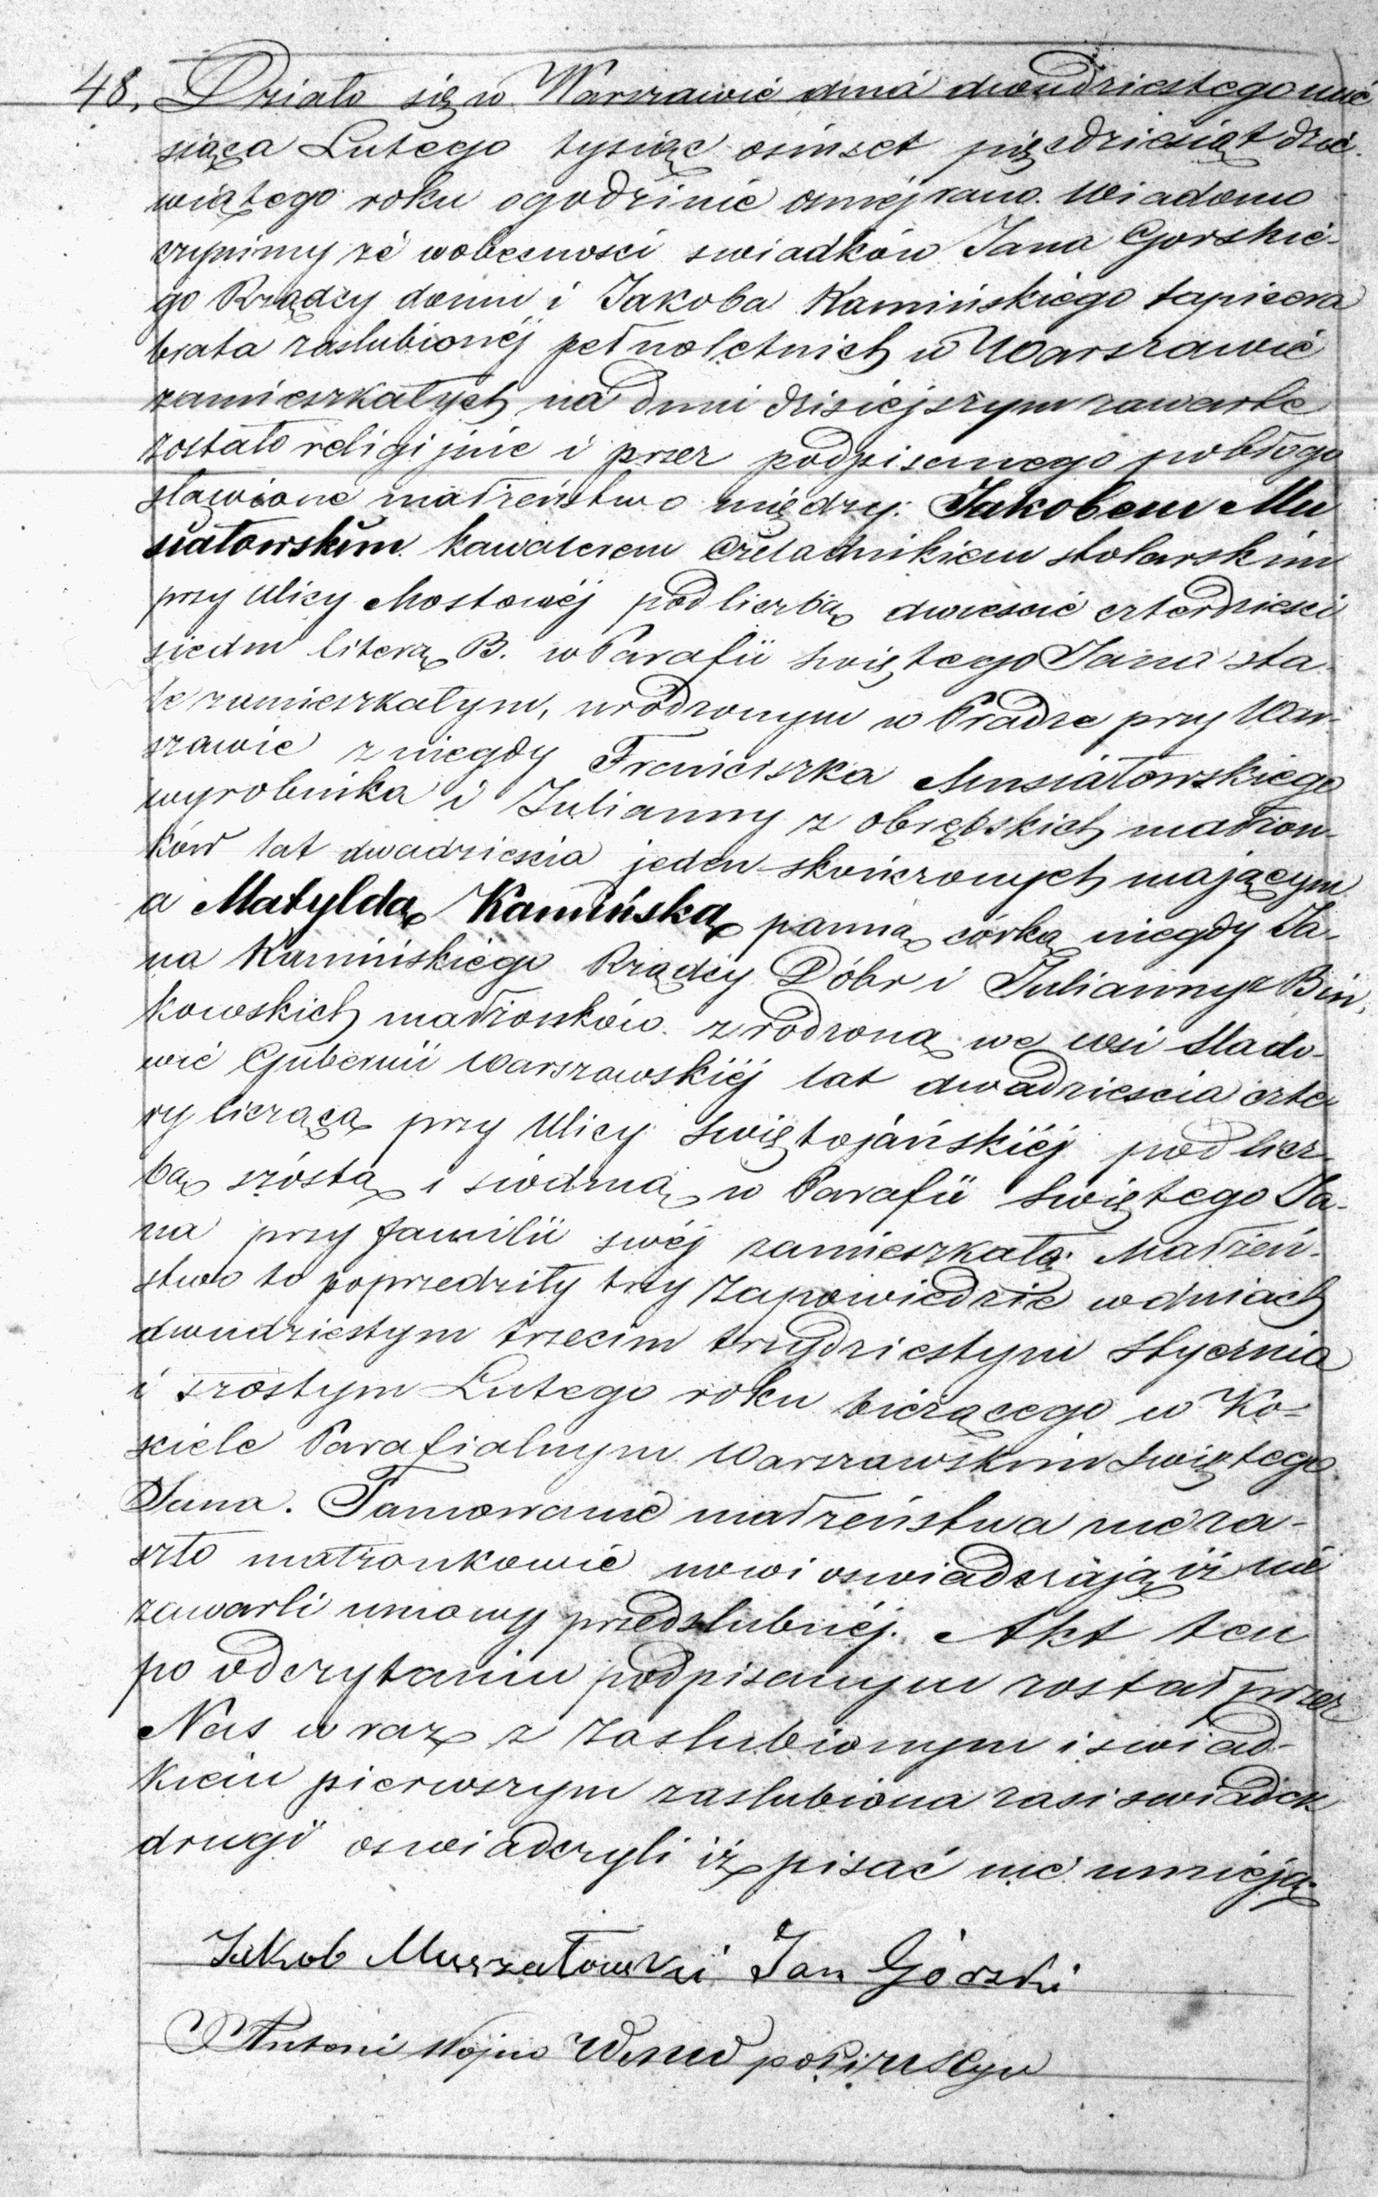 48. Działo się w Warszawie dnia dwudziestego mie
siąca Lutego tysiąc osmset pięcdziesiąt dzie-
wiątego roku o godzinie osmej rano. Wiadomo
czynimy że wobecnosci swiadków Jana Gorskie-
go Rządcy domu i Jakoba Kamińskiego tapicera
brata zaslubionéj pełnoletnich w Warszawie
zamieszkałych na dniu dzisiejszym zawarte
zostało religijnie i przez podpisanego pobłogo
sławione małżeństwo między: Jakobem Mu
siałowskim kawalerem Czeladnikiem stolarskim
przy Ulicy Mostowéj pod liczbą dwiescie czterdziesci
siedm literą B. w Parafii Swiętego Jana sta-
le zamieszkałym, urodzonym w Pradze przy War-
szawie z niegdy Franciszka Musiałowskiego
wyrobnika i Julianny z Obrębskich małżon-
ków lat dwadziescia jeden skończonych mającym
a Matyldą Kamińską panną córką niegdy Ja-
na Kamińskiego Rządcy Dóbr i Julianny z Bin-
kowskich małżonków zrodzoną we wsi Slado-
wie Gubernii Warszawskiéj lat dwadziescia czte
ry liczącą przy Ulicy Swiętojańskiéj pod licz-
bą szóstą i siódmą w Parafii Swiętego Ja-
na przy familii swéj zamieszkałą. Małżeń-
stwo to poprzedziły trzy Zapowiedzie w dniach
dwudziestym trzecim trzydziestym Stycznia
i szostym Lutego roku bieżącego w Ko-
sciele Parafialnym Warszawskim Swiętego
Jana. Tamowanie małżeństwa nie za-
szło małżonkowie nowi oswiadczają iż nie
zawarli umowy przedslubnéj. Akt ten
po odczytaniu podpisanym został przez
Nas wraz z Zaslubionym i swiad-
kiem pierwszym zaslubiona zas i swiadek
drugi oswiadczyli iż pisać nie umieją.
Jakob Muszałowski Jan Górski
Antoni Wojno